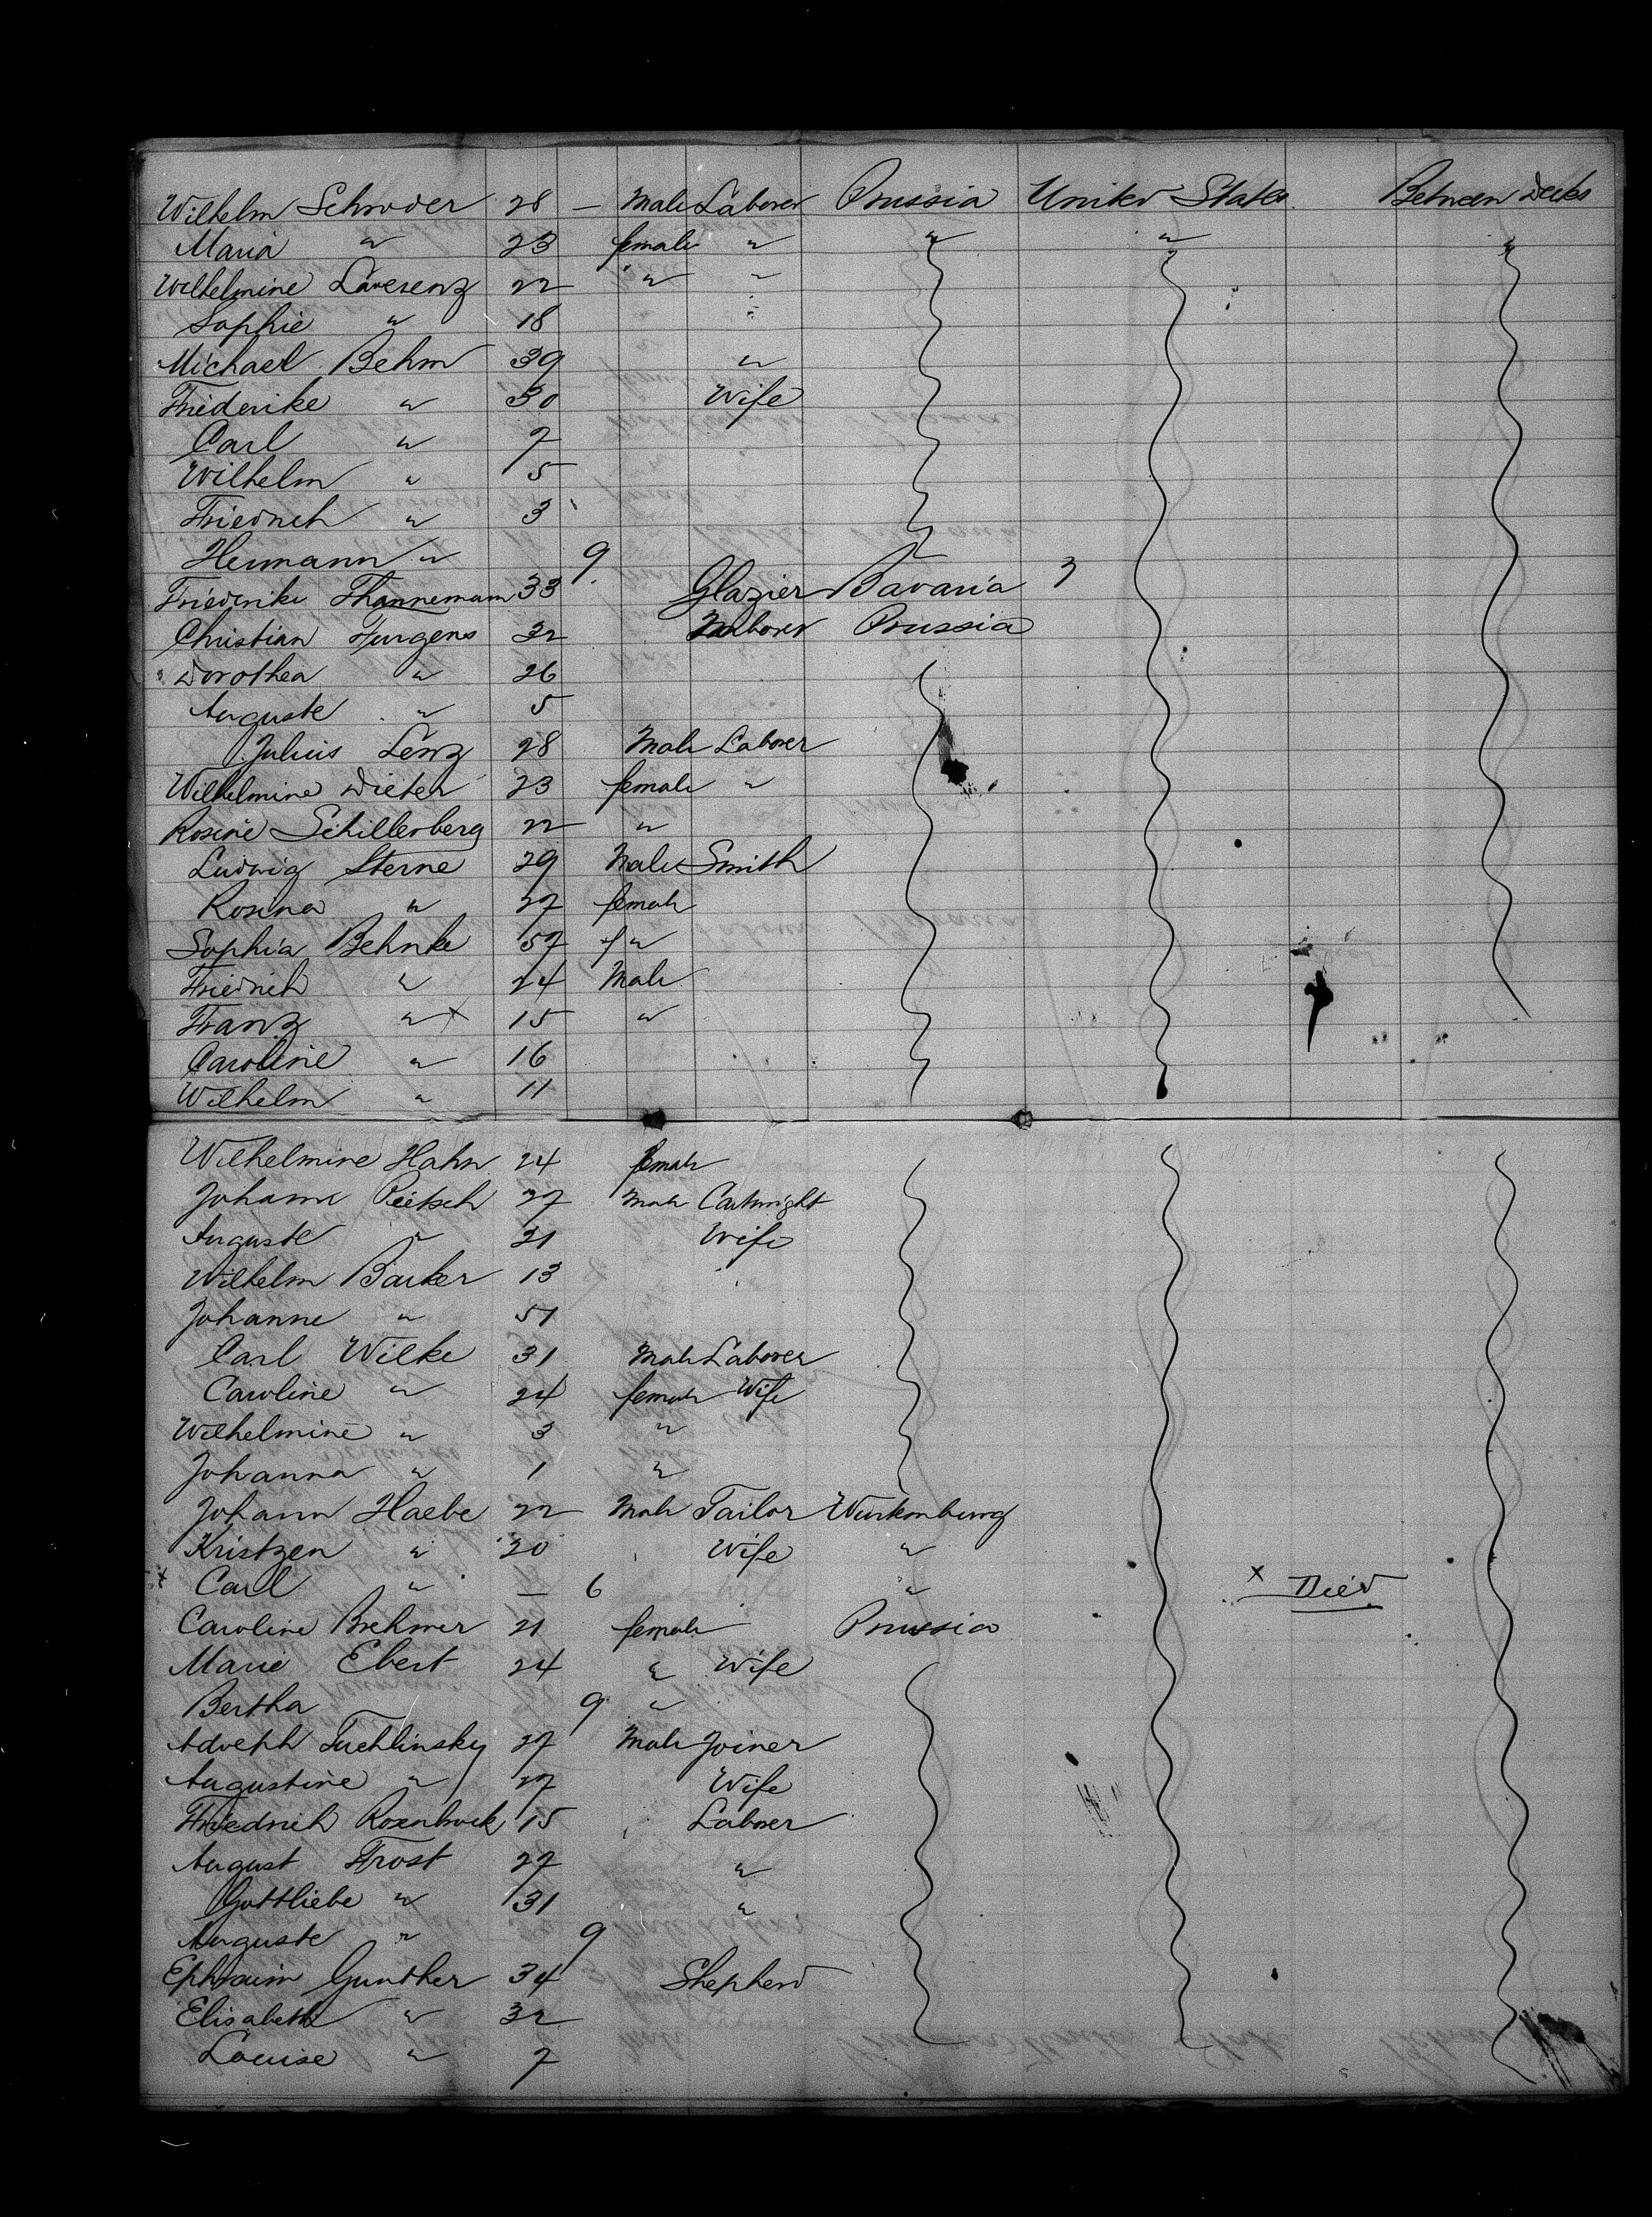 Wilhelm Schroder 28 — Male Laborer Prussia United States Between Decks
Maria " 23 female " " " "
Wilhelmine 22 " "
Sophie " 18
Michael Behm 39 "
Friederike " 30 Wife
Carl " 7
Wilhelm " 5
Friedrich " 3
Hermann " 9
Friederike Thannemann 33 Glazier Bavaria
Christian Jurgens 32 Laborer Prussia
Dorothea " 26
Auguste " 5
Julius Lenz 28 Male Laborer
Wilhelmine Dieter 23 female "
Rosine Schillerberg 22 "
Ludwig Sterne 29 Male Smith
Rosina " 27 female
Sophia Behnke 57 f "
Friedrich " 24 Male
Franz " x 15 "
Caroline " 16
Wilhelm " 11
Wilhelmine Hahn 24 female
Johann Peitsch 27 Male Cartwright
Auguste " 21 Wife
Wilhelm Barker 13
Johanne " 51
Carl Wilke 31 Male Laborer
Caroline " 24 female Wife
Wilhelmine " 3 "
Johanna " 1 "
Johann Haebe 22 Male Tailor Wurtemburg
Kristzen " 20 Wife "
x Carl " — 6 " x Died
Caroline Brehmer 21 female Prussia
Marie Ebert 24 " Wife
Bertha 9 "
Adolph Tuchlinsky 27 Male Joiner
Augustine " 27 Wife
Friedrich Rosenbrock 15 Laborer
August Frost 27 "
Gottliebe " 31 "
Auguste " 9
Ephraim Gunther 34 Shepherd
Elisabeth " 32
Louise " 7